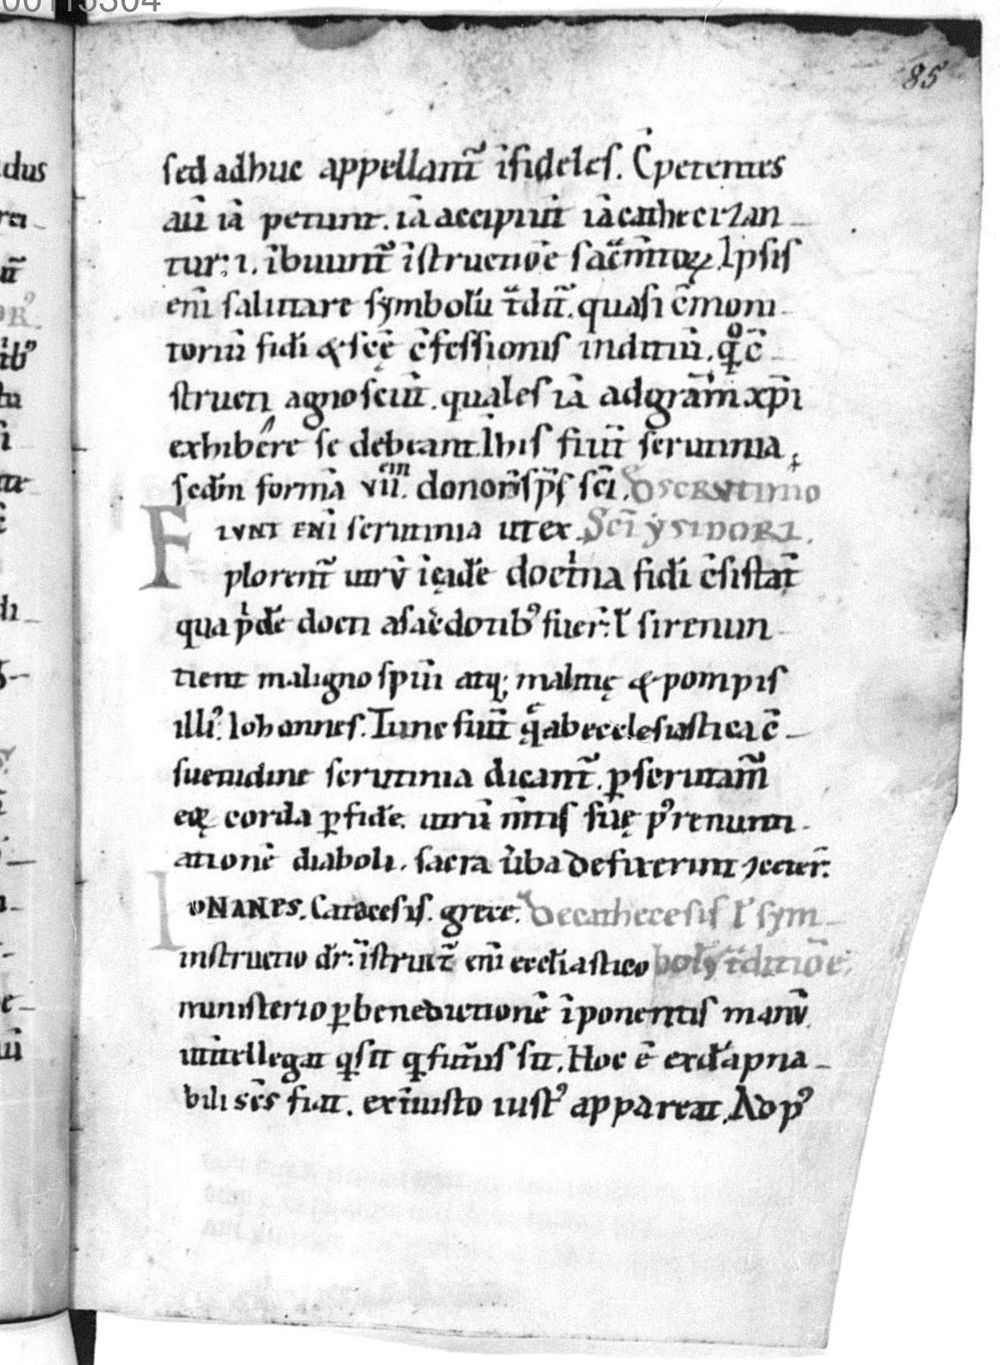 85
sed adhuc appellant᷑ ĩfideles. Cp̄etentes
aũ iã petunt. iã accipiũt iãcathecizan
tur: ı. ĩbuunt᷑ ĩstructiõe sac̃mtoꝝ. Ipsis
enĩ salutare symbolũ t̃dit᷑. quasi c̃moni
toriũ fidi & scę c̃fessionis inditiũ. q̊ c̃
structi agnoscũt. quales iã adgr̃am xp̃i
exhibere se debeant. Ihis fiũt scrutinia,
scd̃m formã vii. donorũ sp̃s sc̃i. De scrutinio
Fiunt enĩ scrutinia ut ex Sc̃i ysidori.
plorent᷑ utrũ
doctͥna fidi c̃sistat᷑
qua
doctı asac̃dotib᷒ fuer̃: ł sirenun
tient maligno spũi atq; malitię & pompis
illi᷒. Iohannes. Tunc fiũt q̃ abecclesiastica c̃
suetudine scrutinia dicant᷑. ꝑscrutam᷑
eoꝝ corda ꝑ fidẽ. utrũ m̃tis suę p᷒ renunti
ationẽ diaboli. sacra ũba defixerint
Ionanes. Catacesis. grece. De cathecesis ł sym
instructio dr̃: ĩstruit᷑ enĩ eccl̃iastico boly t̃ditiõe.
ministerio ꝑ benedictionẽ ĩponentis manũ
utĩtellegat q̃ sit q̃ futur̃s sit. Hoc ẽ
bili sc̃s fiat. exĩiusto iust᷒ appareat. Ad p᷒